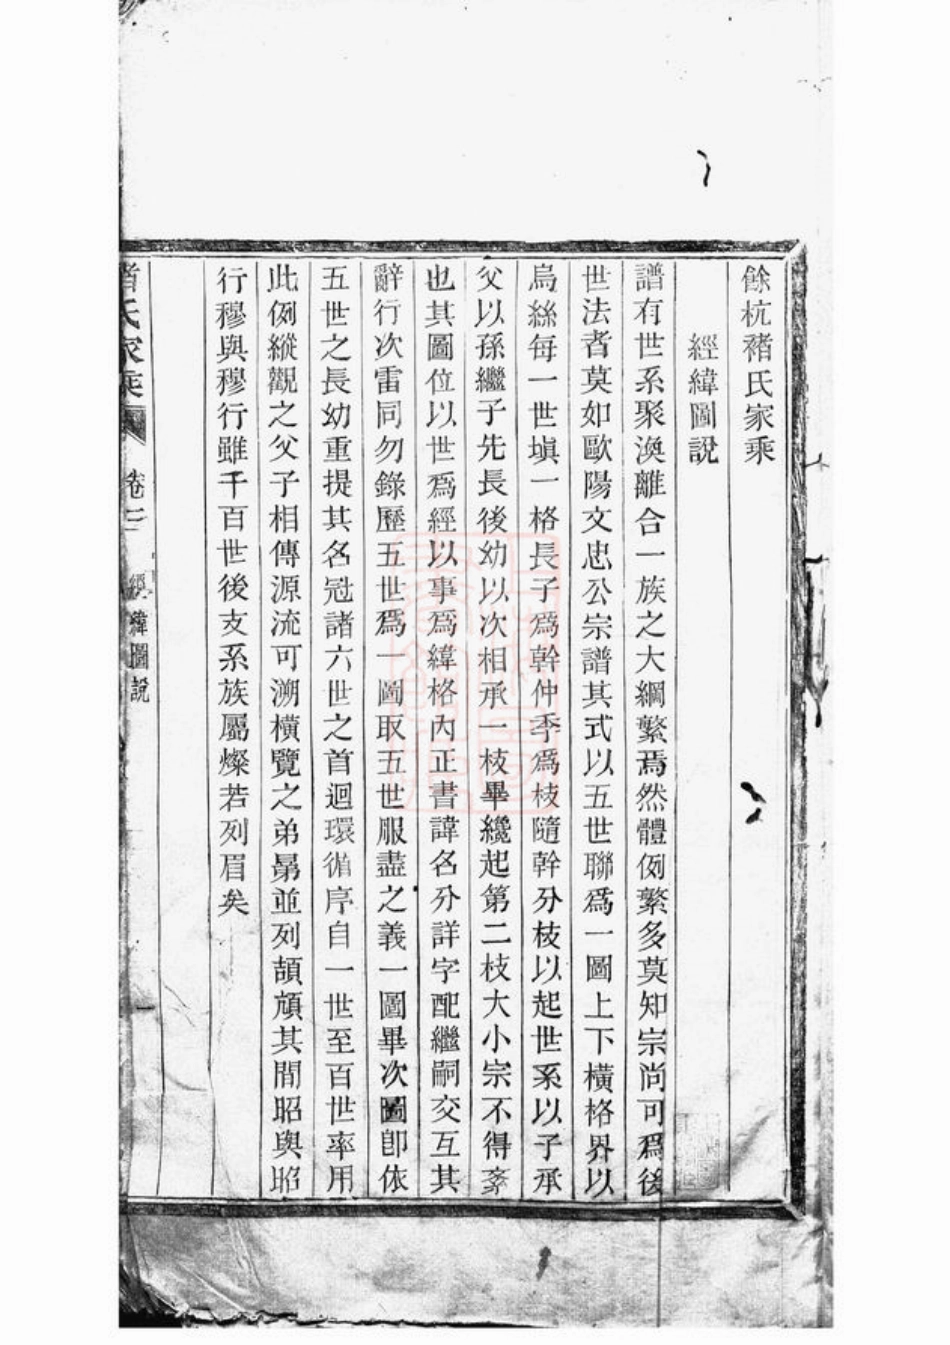 餘杭褚氏家乘
經緯圖說
譜有世系聚渙離合一族之大綱繫焉然體例繁多莫知宗尚可爲後
世法者莫如歐陽文忠公宗譜其式以五世聯爲一圖上下橫格界以
烏絲每一世塡一格長子爲幹仲季爲枝隨幹分枝以起世系以子承
父以孫繼子先長後幼以次相承一枝畢纔起第二枝大小宗不得紊
也其圖位以世爲經以事爲緯格內正書諱名分詳字配繼嗣交互其
辭行次雷同勿錄歷五世爲一圖取五世服盡之義一圖畢次圖卽依
五世之長幼重提其名冠諸六世之首迴環循序自一世至百世率用
此例縱觀之父子相傳源流可溯橫覽之弟晜並列頡頏其間昭與昭
行穆與穆行雖千百世後支系族屬燦若列眉矣
褚氏家乘 卷二 經緯圖說 一